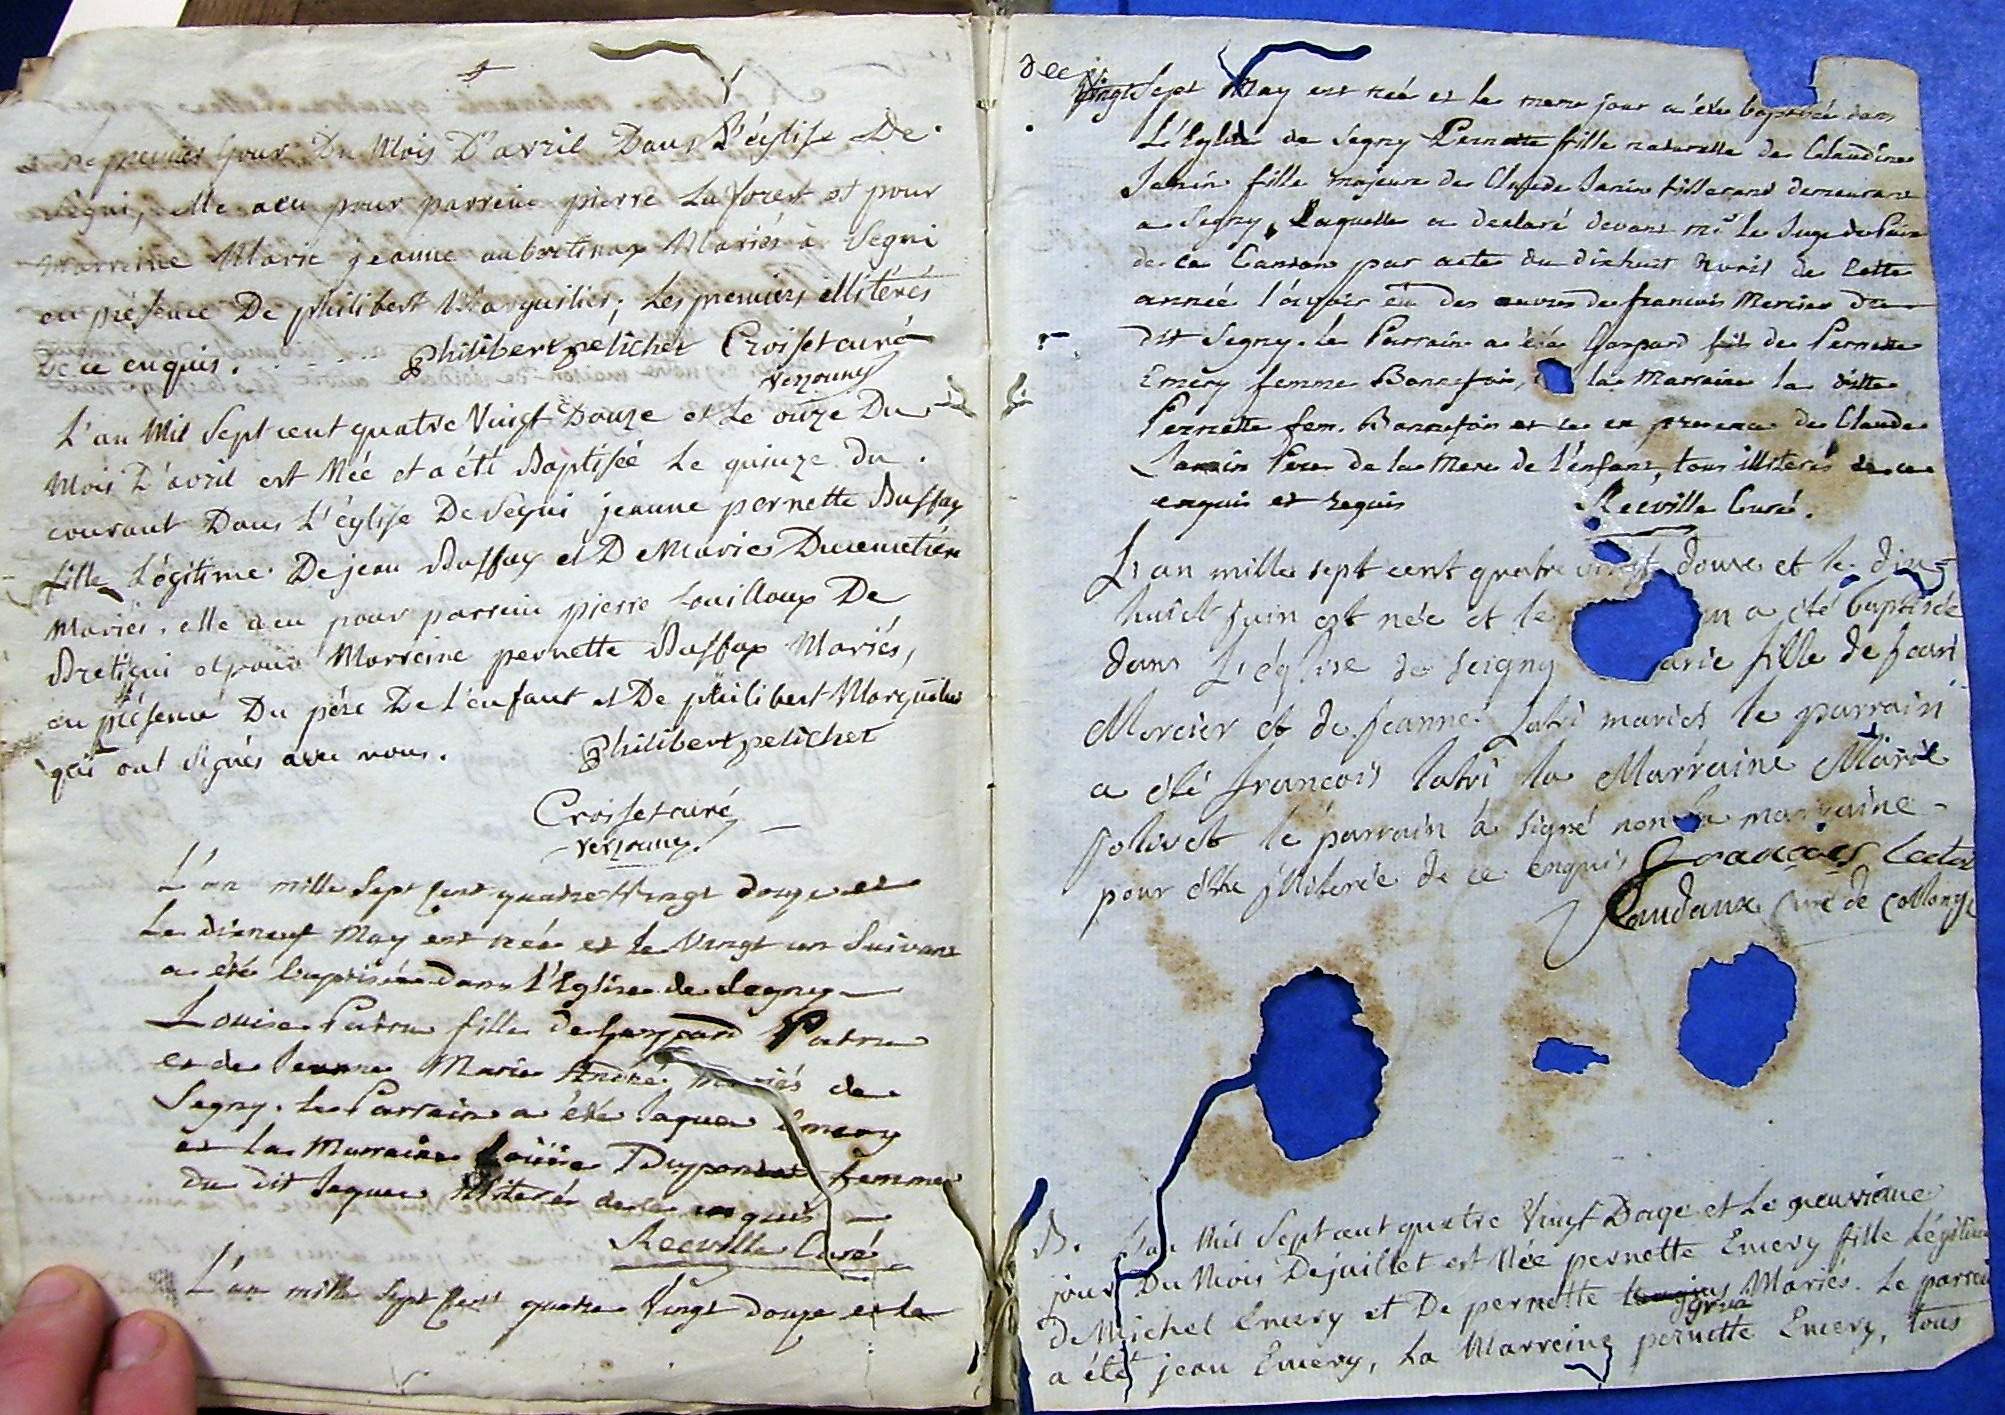 le premier jour Du Mois D'avril Dans L'église De
Segni, elle a eu pour parrein pierre La forest et pour
Marreine Marie jeanne aubertinax Mariés à Segni
en présence De philibert Marguilier; Les premiers illitérés
De ce enquis. philibert pelichet Croiset curé
versonnex
L'an Mil Sept cent quatre Vingt Douze et Le onze Du
Mois D'avril est Née et a été Baptisée Le quinze du
courant Dans L'église De Segni jeanne pernette Buffax
fille Légitime De jean Buffax et De Marie Ducimetière
Mariés. elle a eu pour parrein pierre Souilloux De
Bretigni et pour Marreine pernette Buffax Mariés,
en présence Du père De L'enfant et De philibert Marguilier
qui ont signés avec nous. philibert pelichet
Croiset curé
versonnex
L'an mille Sept Cent quatre Vingt douze et
Le dixneuf May est née et le Vingt un Suivant
a été baptisée dans l'Eglise de Segny
Louise Patru fille de Gaspard Patru
et de Jeanne Marie André, mariés de
Segny. le Parrain a été Jaques Emery
et la Marraine Louise Dupont femme
du dit Jaques illiterés de ce enquis
Reeville Curé
L'an mille Sept Cent quatre Vingt douze et le
Vingt Sept May est née et le meme jour a été baptisée dans
L'Eglise de Segny Pernette fille naturelle de Claudine
Janin fille majeure de Claude Janin tisserand demeurant
a Segny, laquelle a declaré devant mr le Juge de Paix
de ce Canton par acte du dixhuit Avril de cette
année l'avoir eu des œuvres de francois Mercier du
dit Segny. le Parrain a été Gaspard fils de Pernette
Emery femme Bonnefoin, la Marraine la ditte
Pernette fem. Bonnefoin et ce en presence de Claude
Janin Pere de la Mere de l'enfant, tous illiterés de ce
enquis et requis Reeville Curé.
L'an mille sept cent quatre vingt douze et le dix=
huict Juin est née et le n a été baptisée
dans L'église de Seigny arie fille de Jean
Mercier et de Jeanne Latri mariés le parrain
a été françois Latri la Marraine Marie
Jolivet le parrain a signé non la marraine
pour être illiterée de ce enquis François
Landaux Curé de Collonge
B. L'an Mil Sept cent quatre Vingt Douze et Le neuvieme
jour Du Mois De juillet est Née pernette Emery fille Légitime
De Michel Emery et De pernette gros Mariés. Le parrein
a été jean Emery, La Marreine pernette Emery, tous